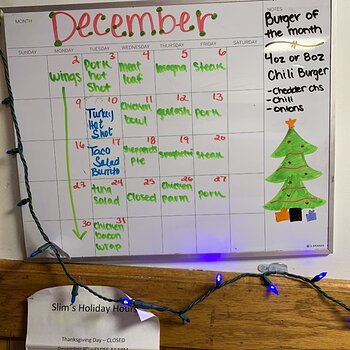 MONTH December
SUNDAY MONDAY TUESDAY WEDNESDAY THURSDAY FRIDAY SATURDAY
2 3 4 5 6
wings Pork hot shot meat loaf lasagna steak
9 10 11 12 13
Turkey Hot Shot chicken bowl goulash pork
16 17 18 19 20
Taco Salad Burrito shepherds pie spaghetti steak
23 24 25 26 27
tuna salad closed chicken parm pork
30 31
chicken bacon wrap
NOTES
Burger of
the month
4oz or 8oz
Chili Burger
- Chedder chs
- Chili
- onions
Slim's Holiday Hours
Thanksgiving Day – CLOSED